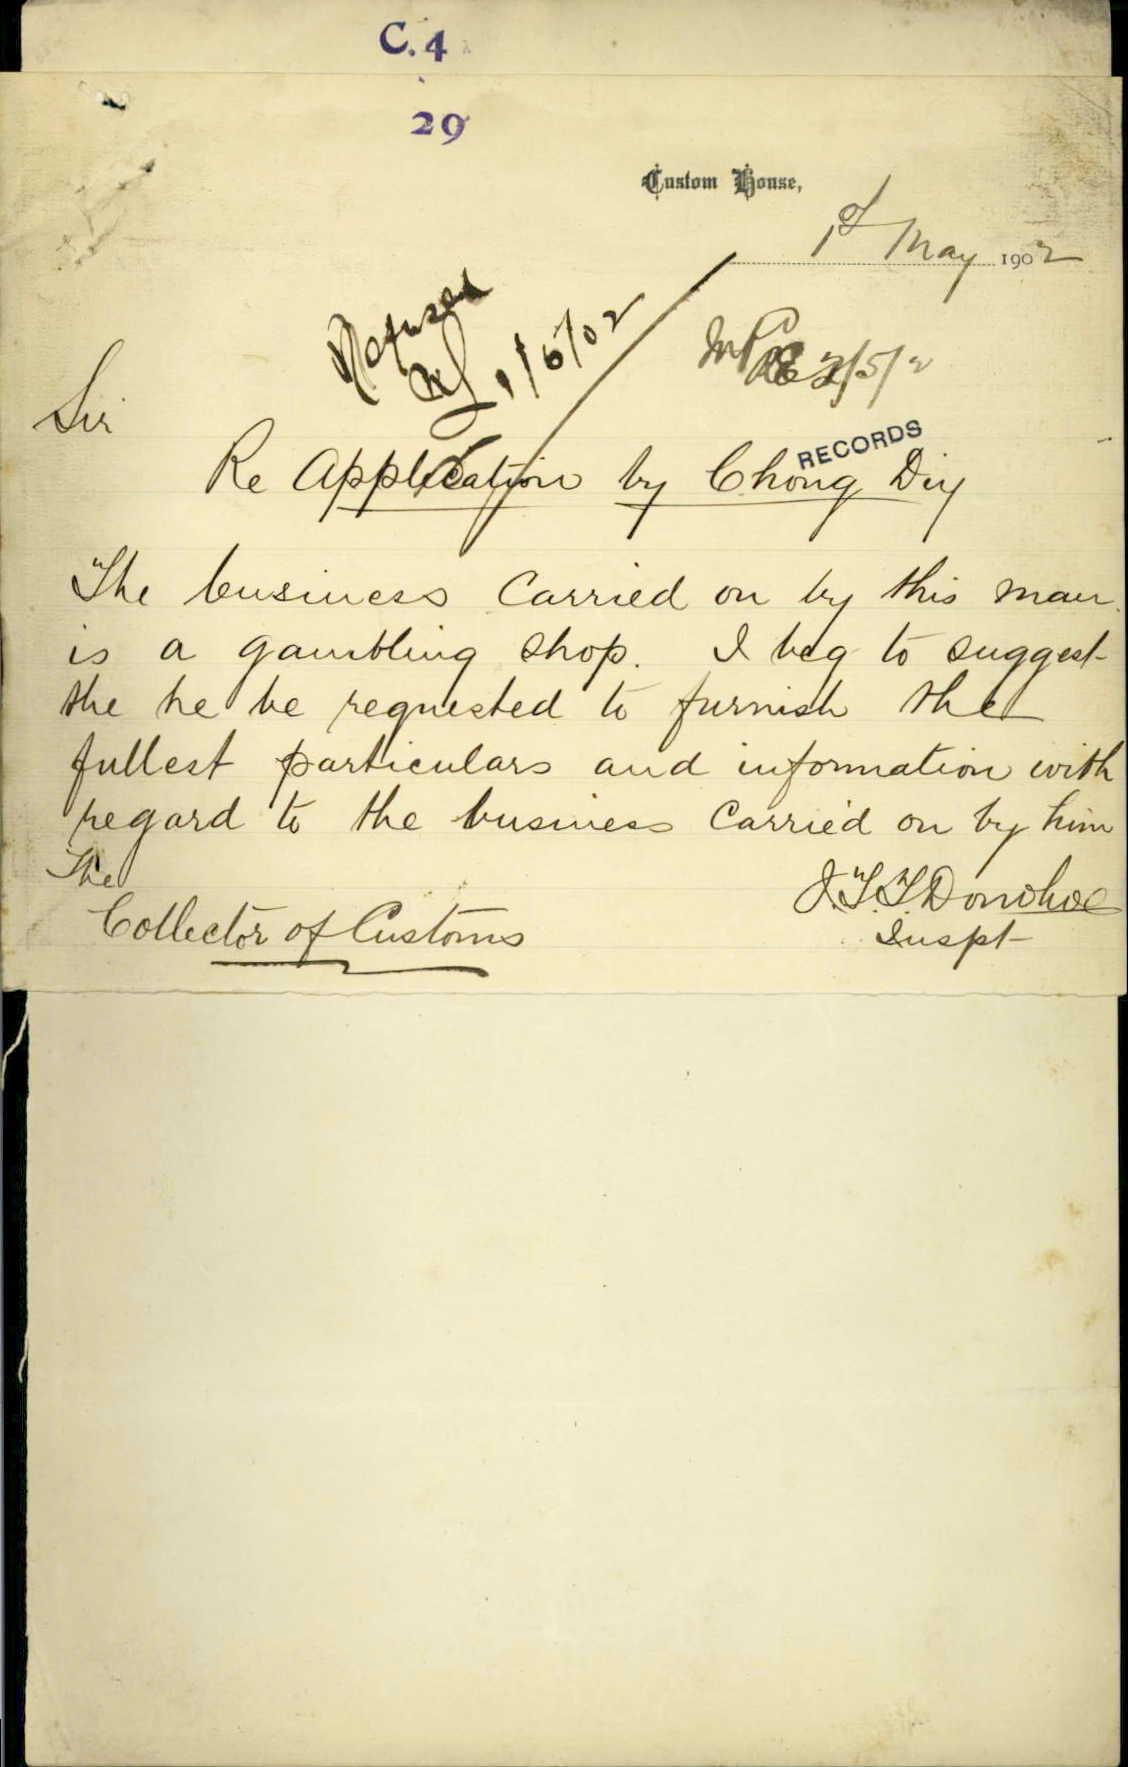 C. 4
29
Custom House,
1st May 1902
Refused
1/5/02
2/5/2
Sir
RECORDS
Re Application by Chong Diy
The business carried on by this man
is a gambling shop. I beg to suggest
the he be requested to furnish the
fullest particulars and information with
regard to the business carried on by him
The
Collector of Customs
J.T.T Donohoe
Inspt